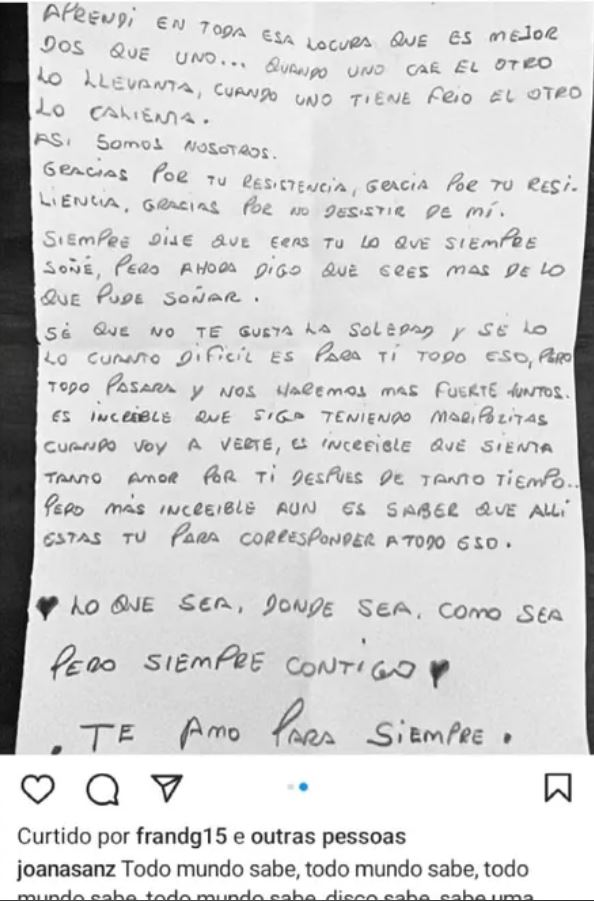 APRENDÍ EN TODA ESA LOCURA QUE ES MEJOR
DOS QUE UNO... QUANDO UNO CAE EL OTRO
LO LLEVANTA, CUANDO UNO TIENE FRIO EL OTRO
LO CALIENTA.
ASI SOMOS NOSOTROS.
GRACIAS POR TU RESISTENCIA, GRACIA POR TU RESI-
LIENCIA, GRACIAS POR NO DESISTIR DE MÍ.
SIEMPRE DIJE QUE ERAS TU LO QUE SIEMPRE
SOÑÉ, PERO AHORA DIGO QUE ERES MAS DE LO
QUE PUDE SOÑAR.
SÉ QUE NO TE GUSTA LA SOLEDAD Y SÉ LO
LO CUANTO DIFICIL ES PARA TÍ TODO ESO, PERO
TODO PASARA Y NOS HAREMOS MAS FUERTE JUNTOS.
ES INCREIBLE QUE SIGA TENIENDO MARIPOZITAS
CUANDO VOY A VERTE, ES INCREIBLE QUE SIENTA
TANTO AMOR POR TI DESPUES DE TANTO TIEMPO..
PERO MÁS INCREIBLE AUN ES SABER QUE ALLÍ
ESTAS TU PARA CORRESPONDER A TODO ESO.
♥ LO QUE SEA, DONDE SEA, COMO SEA
PERO SIEMPRE CONTIGO ♥
. TE AMO PARA SIEMPRE.
Curtido por frandg15 e outras pessoas
joanasanz Todo mundo sabe, todo mundo sabe, todo
mundo sabe, todo mundo sabe, disco sabe, sabe uma